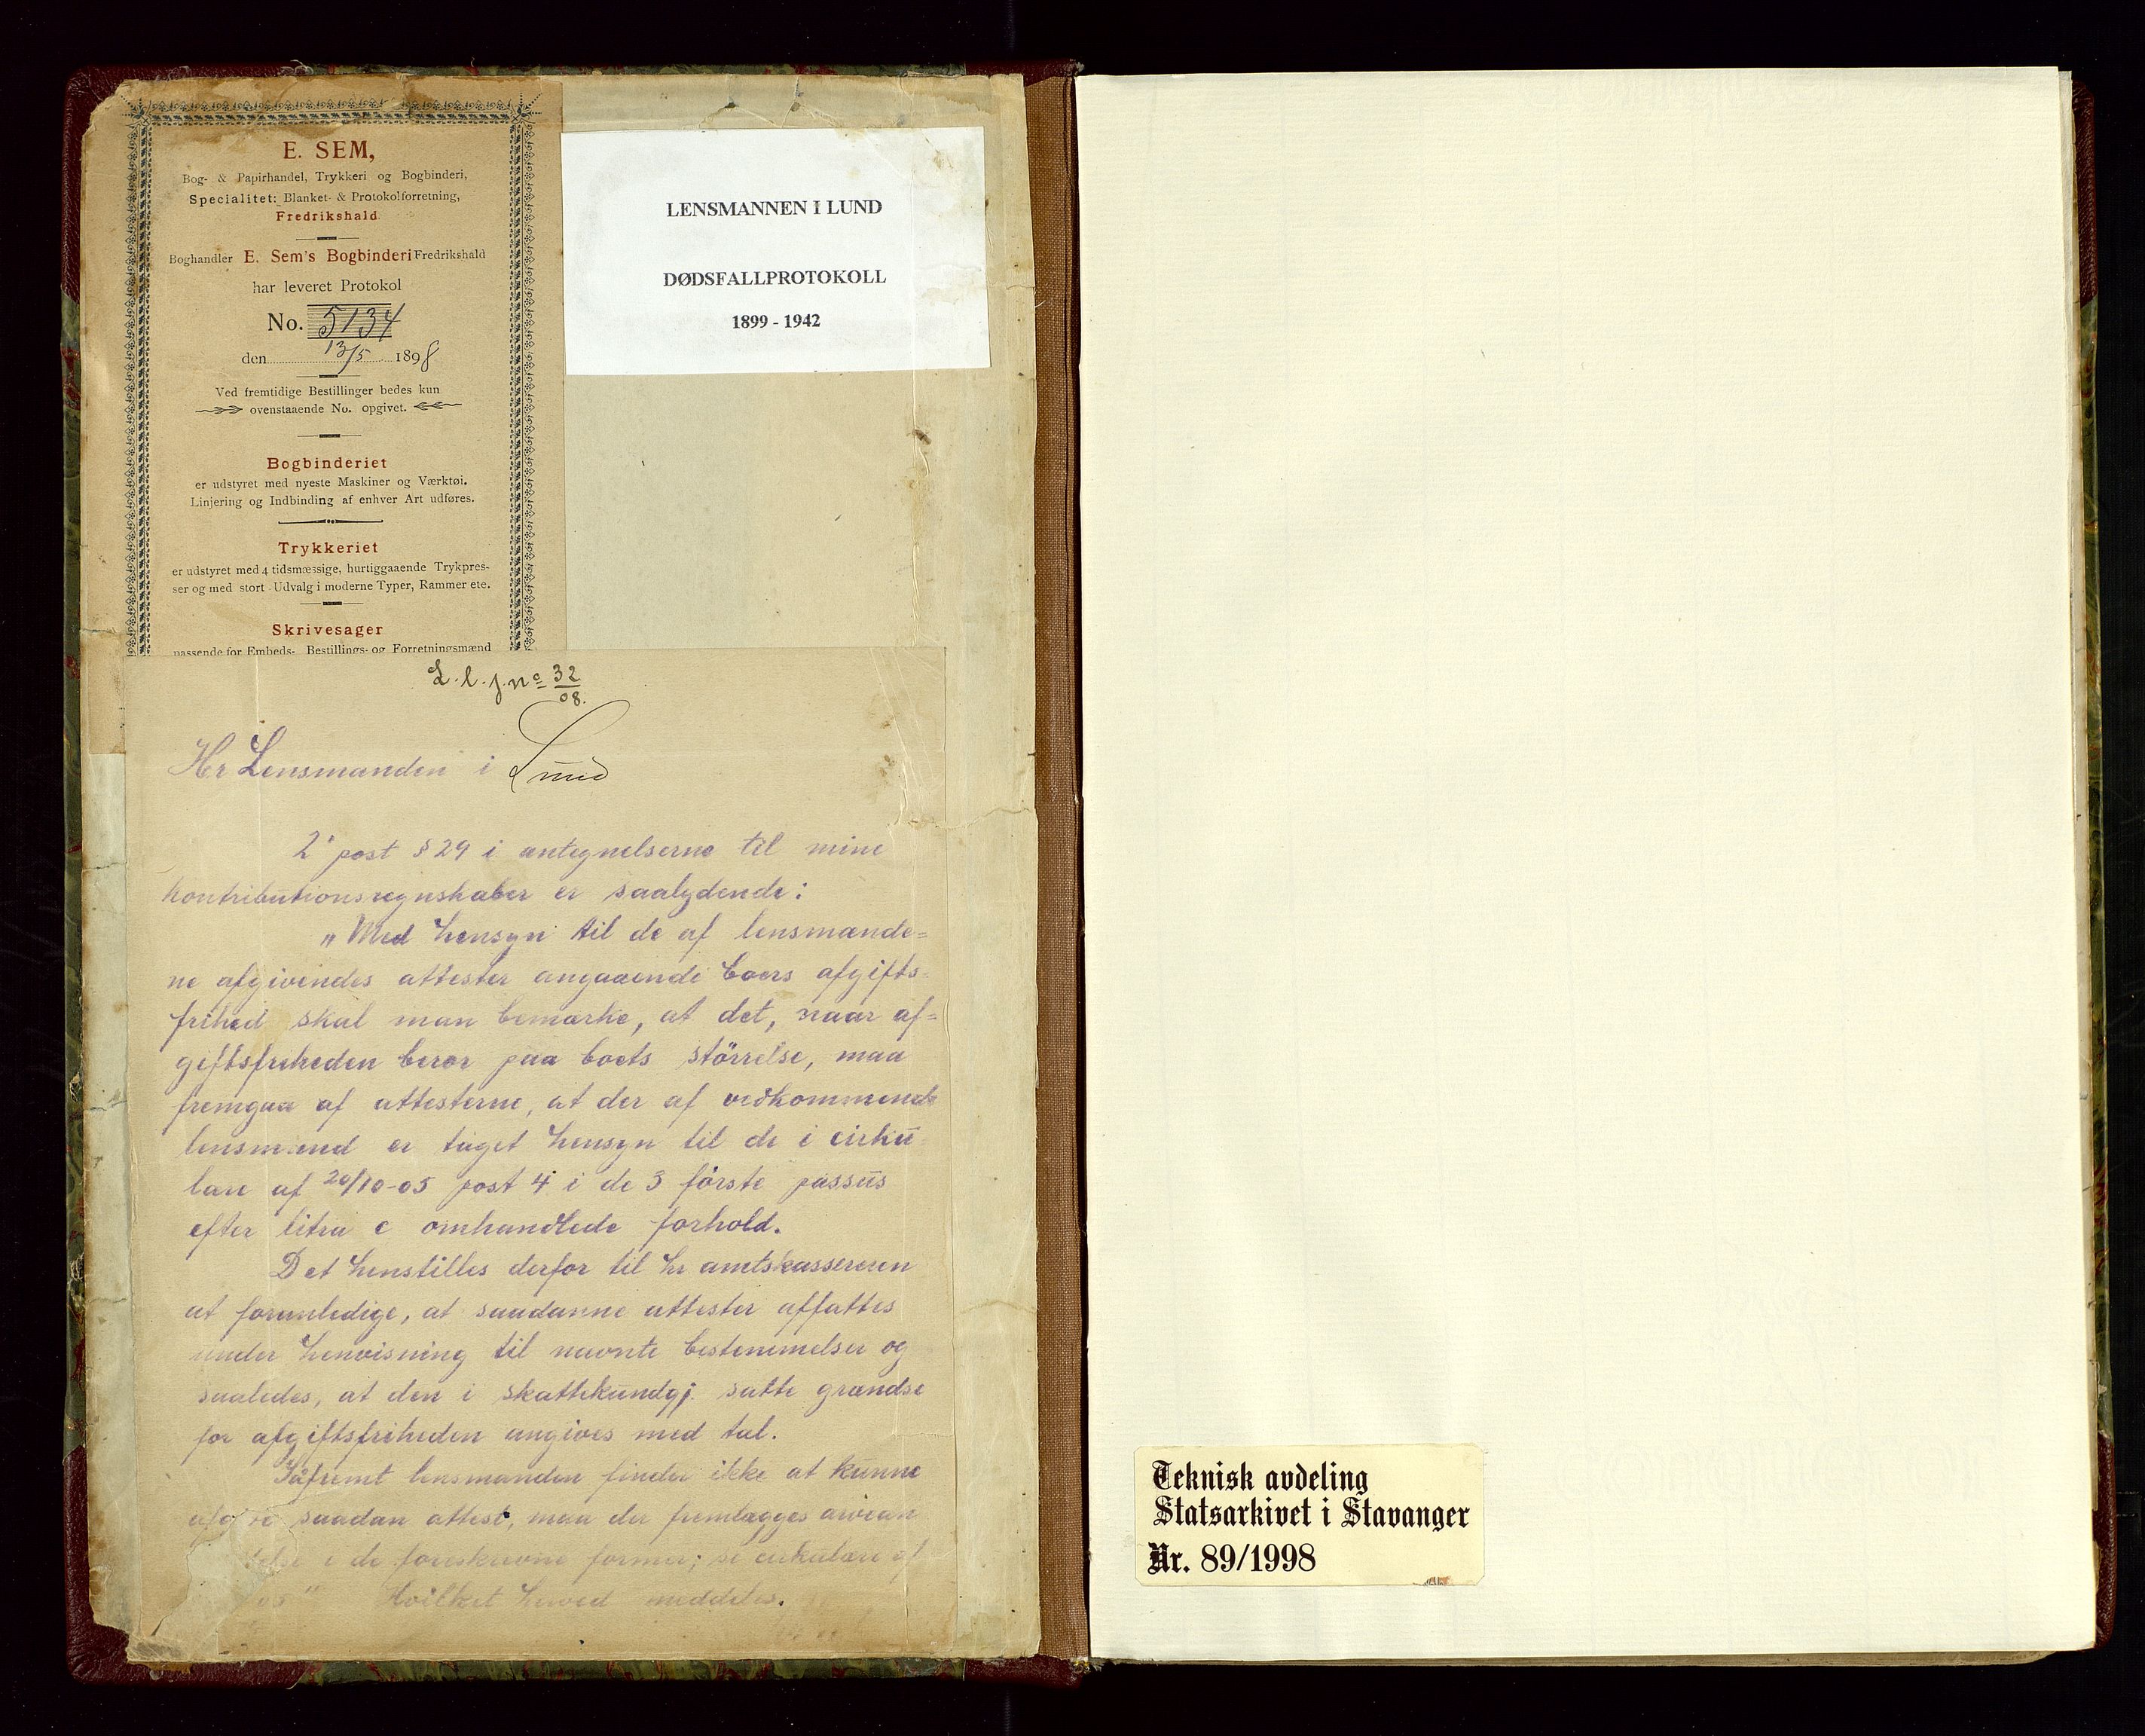 E. SEM,
Bog- & Papirhandel, Trykkeri og Bogbinderi,
Specialitet: Blanket- & Protokolforretning,
Fredrikshald
Boghandler E. Sem's Bogbinderi Fredrikshald
har leveret Protokol
No. 5134
den 13/5 1898
Ved fremtidige Bestillinger bedes kun
ovenstaaende No. opgivet.
Bogbinderiet
er udstyret med nyeste Maskiner og Værktøi.
Linjering og Indbinding af enhver Art udføres.
Trykkeriet
er udstyret med 4 tidsmæssige, hurtiggaaende Trykpres-
ser og med stort Udvalg i moderne Typer, Rammer etc.
Skrivesager
passende for Embeds-, Bestillings- og Forretningsmænd
LENSMANNEN I LUND
DØDSFALLPROTOKOLL
1899 - 1942
L. l. j. no 32/08.
Hr Lensmanden i Lund
2' post § 29 i antegnelserne til mine
kontributionsregnskaber er saalydende:
„Med hensyn til de af lensmænde=
ne afgivendes attester angaaende boers afgifts=
frihed skal man bemærke, at det, naar af=
giftsfriheden beror paa boets störrelse, maa
fremgaa af attesterne, at der af vedkommende
lensmand er taget hensyn til de i cirku=
lære af 20/10-05 post 4 i de 3 förste passus
efter litra c omhandlede forhold.
Det henstilles derfor til hr amtskassereren
at foranledige, at saadanne attester affattes
under henvisning til nævnte bestemmelser og
saaledes, at den i skattekundgj. satte grændse
for afgiftsfriheden angives med tal.
Saafremt lensmanden finder ikke at kunne
afgive saadan attest, maa der fremlægges
i de foreskrevne former; se cirkulære af
05" Hvilket herved meddeles.
Teknisk avdeling
Statsarkivet i Stavanger
Nr. 89/1998